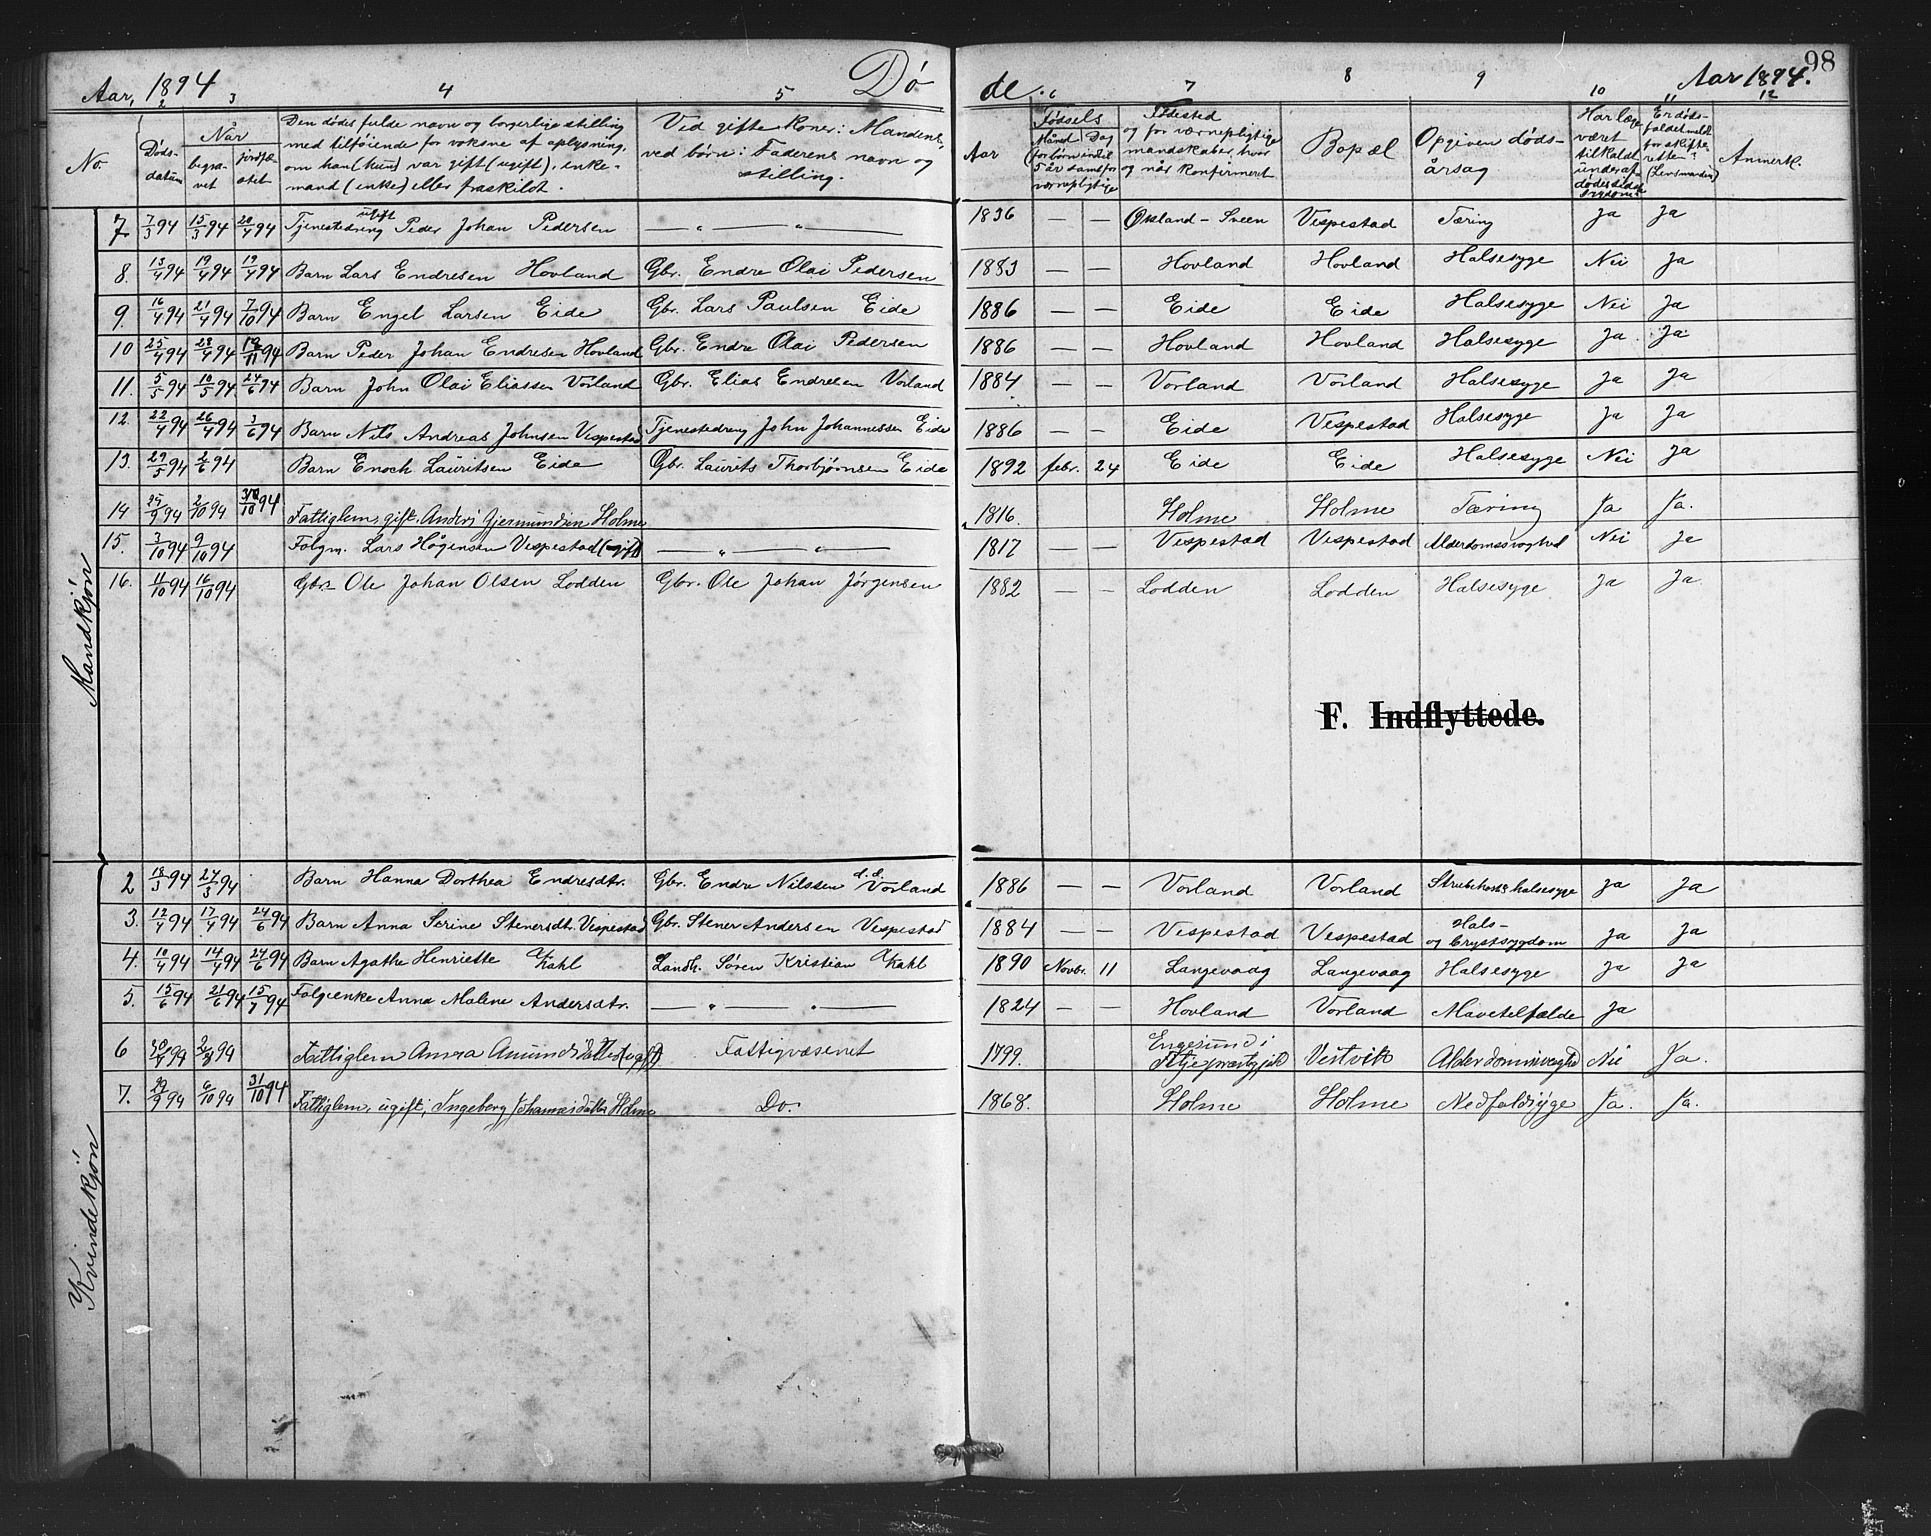 Aar, 1894 Dö
de. Aar 1894. 98
2 3 4 5
6 7 8 9 10 11 12
No. Dödsdatum Når begravet jordfæstet Den dödes fulde navn og borgerlige stilling med tilföiende for voksne af oplysning, om han (hun) var gift (ugift), enkemand (enke) eller fraskilt. Ved gifte koner: Mandens, ved børn: Faderens navn og stilling.
Aar Fødsels Månd Dag (for børn indtil 5 år samt for værnepligtige Fødested og for værnepligtige mandskaber, hvor og når konfirmeret Bopæl Opgiven dødsårsag Har læge været tilkaldt under af dødes sidste sygdom? Er dødsfaldet meldt for skifteretten? (Lensmanden) Anmerk.
Mandkjön
7 7/3 94 15/3 94 20/4 94 Tjenestedreng ugift Peder Johan Pedersen — „ — „ — 1836 — — Økland - Sveen Vespestad Tæring Ja Ja
8. 13/4 94 19/4 94 19/4 94 Barn Lars Endresen Hovland Gbr. Endre Olai Pedersen 1883 — — Hovland Hovland Halsesyge Nei Ja
9. 16/4 94 21/4 94 7/10 94 Barn Engel Larsen Eide Gbr. Lars Paulsen Eide 1886 — — Eide Eide Halsesyge Nei Ja
10 25/4 94 28/4 94 19/11 94 Barn Peder Johan Endresen Hovland Gbr. Endre Olai Pedersen 1886 — — Hovland Hovland Halsesyge Ja Ja
11. 5/5 94 10/5 94 24/6 94 Barn John Olai Eliassen Vorland Gbr. Elias Endresen Vorland 1884 — — Vorland Vorland Halsesyge Ja Ja
12. 22/4 94 26/4 94 3/6 94 Barn Nils Andreas Johnsen Vespestad Tjenestedreng John Johannessen Eide 1886 — — Eide Vespestad Halsesyge Ja Ja
13. 29/5 94 2/6 94 Barn Enoch Lauritsen Eide Gbr. Laurits Thorbjørnsen Eide 1892 febr. 24 Eide Eide Halsesyge Nei Ja
14 25/9 94 2/10 94 31/10 94 Fattiglem, gift, Anders Gjermundsen Holme 1816. Holme Holme Tæring Ja Ja.
15. 3/10 94 9/10 94 Folgm. Lars Hågensen Vespestad (gift) — „ — „ — 1817 — — Vespestad Vespestad Alderdomssvaghed Nei Ja
16. 11/10 94 16/10 94 Gbr. Ole Johan Olsen Lodden Gbr. Ole Johan Jörgensen 1882 — — Lodden Lodden Halsesyge Ja Ja
F. Indflyttede.
Kvindekjön
2 18/3 94 24/3 94 Barn Hanna Dorthea Endresdtr. Gbr. Endre Nilssen d.d. Vorland 1886 — — Vorland Vorland Strubehoste halsesyge Ja Ja
3. 12/4 94 17/4 94 24/6 94 Barn Anna Serine Stenersdt. Vespestad Gbr. Stener Andersen Vespestad 1884 — — Vespestad Vespestad Hals- og Brystsygdom Ja Ja
4. 10/4 94 14/4 94 24/6 94 Barn Agathe Henriette Kahl Landh. Sören Kristian Kahl 1890 Novbr. 11 Langevaag Langevaag Halsesyge Ja Ja
5. 15/6 94 21/6 94 15/7 94 Folgienke Anna Malene Andersdtr. — „ — „ — 1824 — — Hovland Vorland Mavetilfælde Ja
6 94 94 Fattiglem Anna Fattigvæsenet 1799. Engesund i Fitje præstegjeld Vestvik Alderdomssvaghed Nei Ja.
7. 29/9 94 6/10 94 31/10 94 Fattiglem, ugift, Ingeborg Johannesdatter Holme Do. 1868. Holme Holme Nedfaldssyge Ja. Ja.